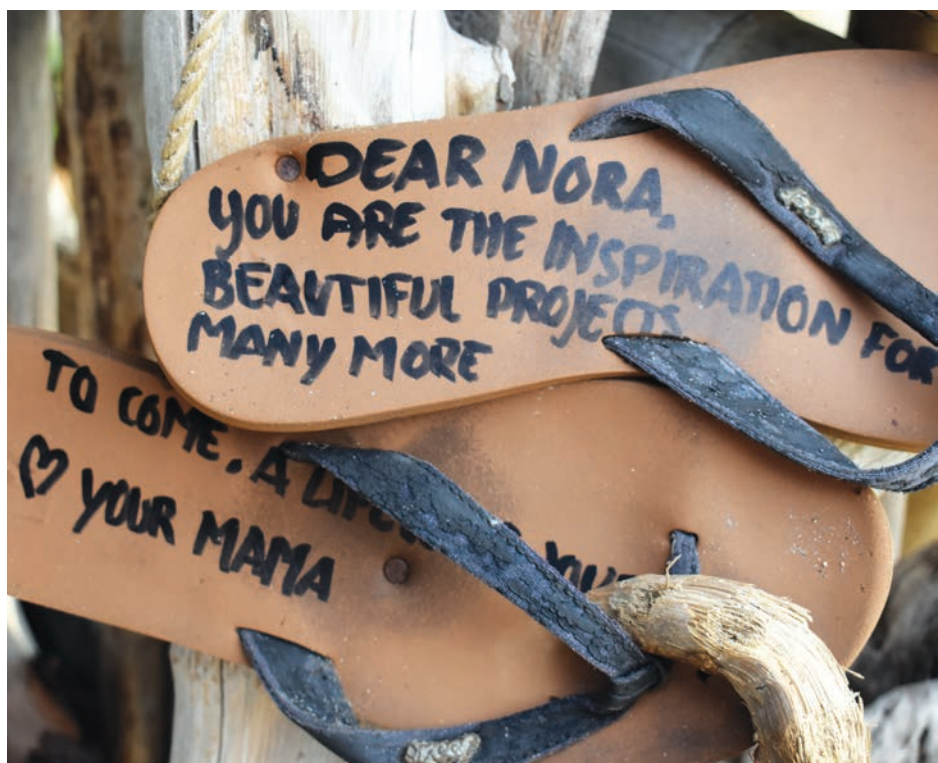 DEAR NORA,
YOU ARE THE INSPIRATION FOR
BEAUTIFUL PROJECTS
MANY MORE
TO COME. A
♡ YOUR MAMA
reef